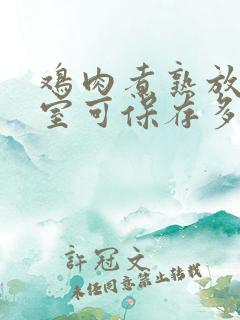 鸡肉煮熟放
室可保存多
許冠文
未经同意禁止转载